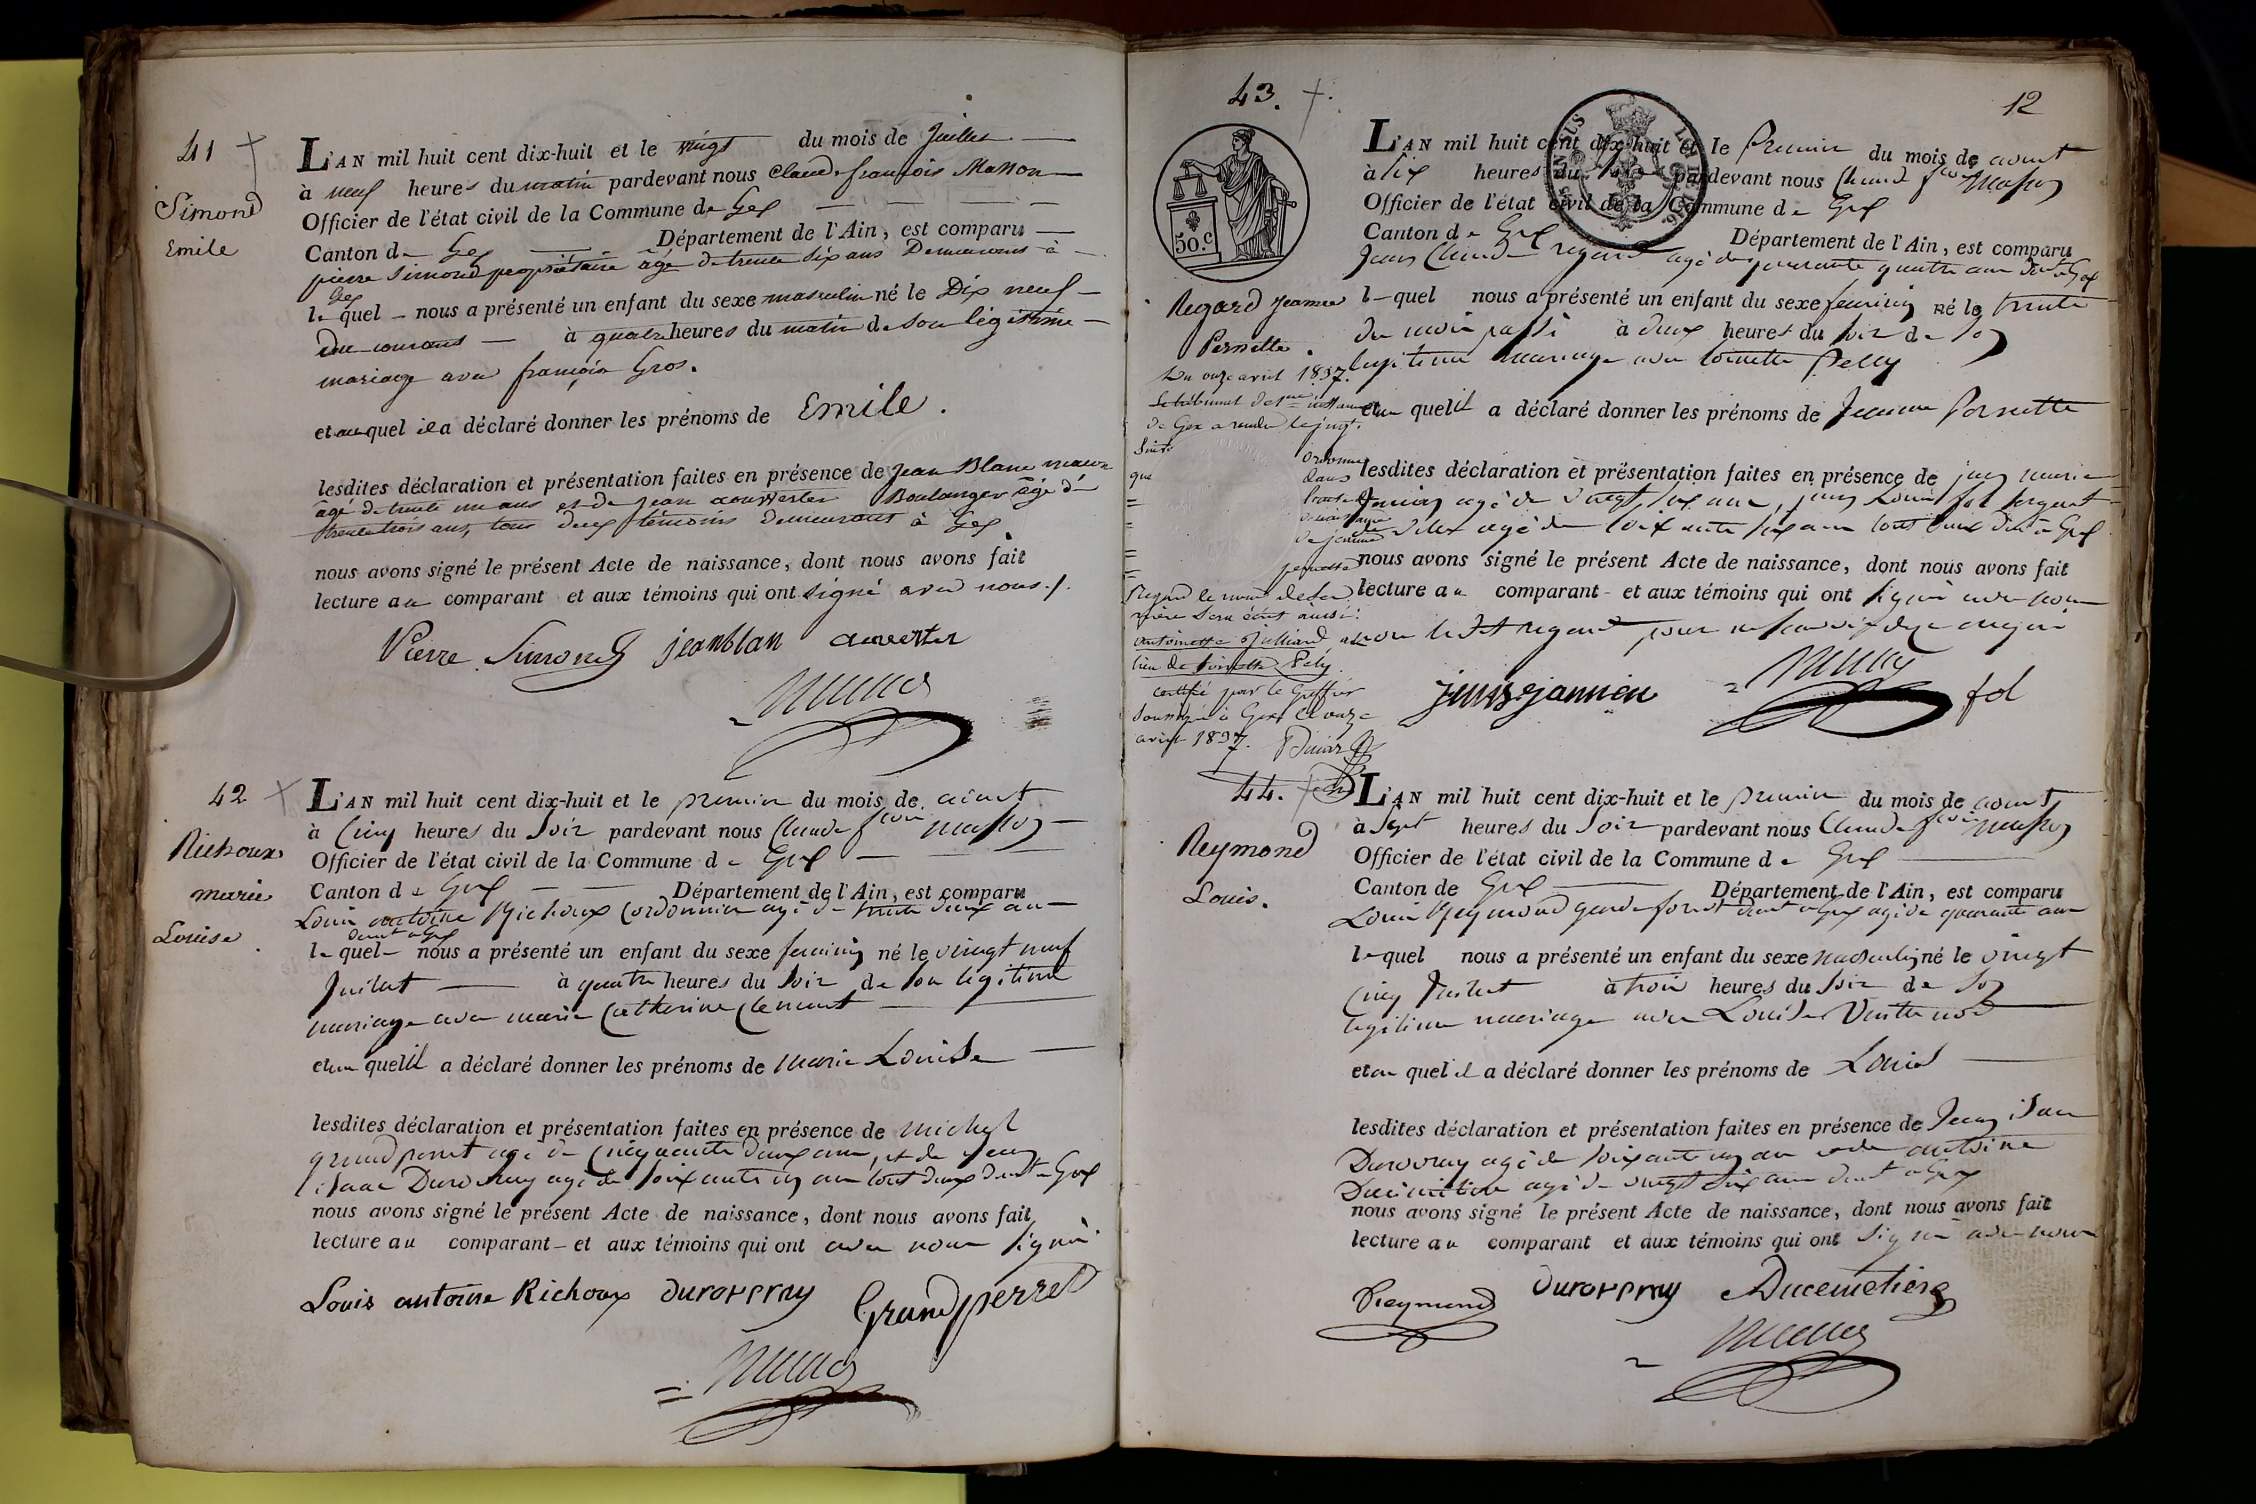 41
Simond
Emile
L'AN mil huit cent dix-huit et le vingt du mois de Juillet
à neuf heures du matin pardevant nous Claude françois Masson
Officier de l'état civil de la Commune de Gex
Canton de Gex Département de l'Ain, est comparu
pierre Simond propriétaire âgé de trente six ans Demeurant à
Gex
lequel nous a présenté un enfant du sexe masculin né le Dix neuf
du courant à quatre heures du matin de son légitime
mariage avec françoise Gros.
et auquel il a déclaré donner les prénoms de Emile.
lesdites déclaration et présentation faites en présence de Jean Blanc maçon
âgé de trente un ans et de Jean auverter Boulanger âgé de
trente trois ans, tous deux témoins demeurant à Gex
nous avons signé le présent Acte de naissance, dont nous avons fait
lecture au comparant et aux témoins qui ont signé avec nous./.
Pierre Simond jean blan auverter
42
Richoux
marie
Louise
L'AN mil huit cent dix-huit et le premier du mois de aoust
à Cinq heures du Soir pardevant nous Claude fcois masson
Officier de l'état civil de la Commune de Gex
Canton de Gex Département de l'Ain, est comparu
Louis antoine Richoux Cordonnier agé de trente deux ans
demt a Gex
lequel nous a présenté un enfant du sexe feminin né le vingt neuf
Juillet à quatre heures du Soir de son legitime
mariage avec marie Catherine Clement
et au quel il a déclaré donner les prénoms de marie Louise
lesdites déclaration et présentation faites en présence de michel
grandperret agé de Cinquante deux ans, et de jean
isaac Durovray agé de soixante un ans tout deux demt a Gex
nous avons signé le présent Acte de naissance, dont nous avons fait
lecture au comparant et aux témoins qui ont avec nous signé.
Louis antoine Richoux Durovray Grandperret
43.
12
50.c
Regard jeanne
Pernette.
L'AN mil huit cent dix-huit et le Premier du mois de aoust
à six heures du Soir pardevant nous Claude fcois masson
Officier de l'état civil de la Commune de Gex
Canton de Gex Département de l'Ain, est comparu
Jean Claude regard agé de quarante quatre ans demt a Gex
lequel nous a présenté un enfant du sexe feminin né le trente
du mois passé à deux heures du soir de son
legitime mariage avec toinette Pelly
et au quel il a déclaré donner les prénoms de Jeanne Pernette
lesdites déclaration et présentation faites en présence de jean marie
agé de vingt six ans, jean Louis fol sergent
de ville agé de soixante six ans tout deux demt a Gex
nous avons signé le présent Acte de naissance, dont nous avons fait
lecture au comparant et aux témoins qui ont signé avec nous
non ledit regard pour ne savoir de ce enquis
fol
Du onze avril 1837.
Le tribunal de 1ere instance
de Gex a rendu le jugt.
Suivt
ordonne
que dans
l'acte
de naissance
de jeanne
pernette
Regard le nom de la
mère sera écrit ainsi:
antoinette Julliard au
lieu de toinette Pely.
certifié par le Greffier
soussigné à Gex le onze
avril 1837.
44.
Reymond
Louis.
L'AN mil huit cent dix-huit et le Premier du mois de aoust
à Sept heures du Soir pardevant nous Claude fcois masson
Officier de l'état civil de la Commune de Gex
Canton de Gex Département de l'Ain, est comparu
Louis Reymond garde forest demt a Gex agé de quarante ans
lequel nous a présenté un enfant du sexe masculin né le vingt
Cinq Juillet à trois heures du Soir de son
legitime mariage avec Louise
et au quel il a déclaré donner les prénoms de Louis
lesdites déclaration et présentation faites en présence de Jean isaac
Durovray agé de soixante un ans et de antoine
Ducimetiere agé de vingt six ans demt a Gex
nous avons signé le présent Acte de naissance, dont nous avons fait
lecture au comparant et aux témoins qui ont signé avec nous
Reymond Durovray Ducemetiere